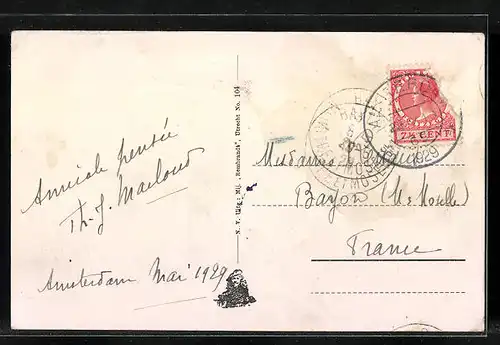 Amicale pensée
Th. J. Mailand
Amsterdam Mai 1929
N. V. Uitg: Mij. „Rembrandt", Utrecht No. 104
7½ CENT
1929
Mesdames
Bayon (M & Moselle)
France